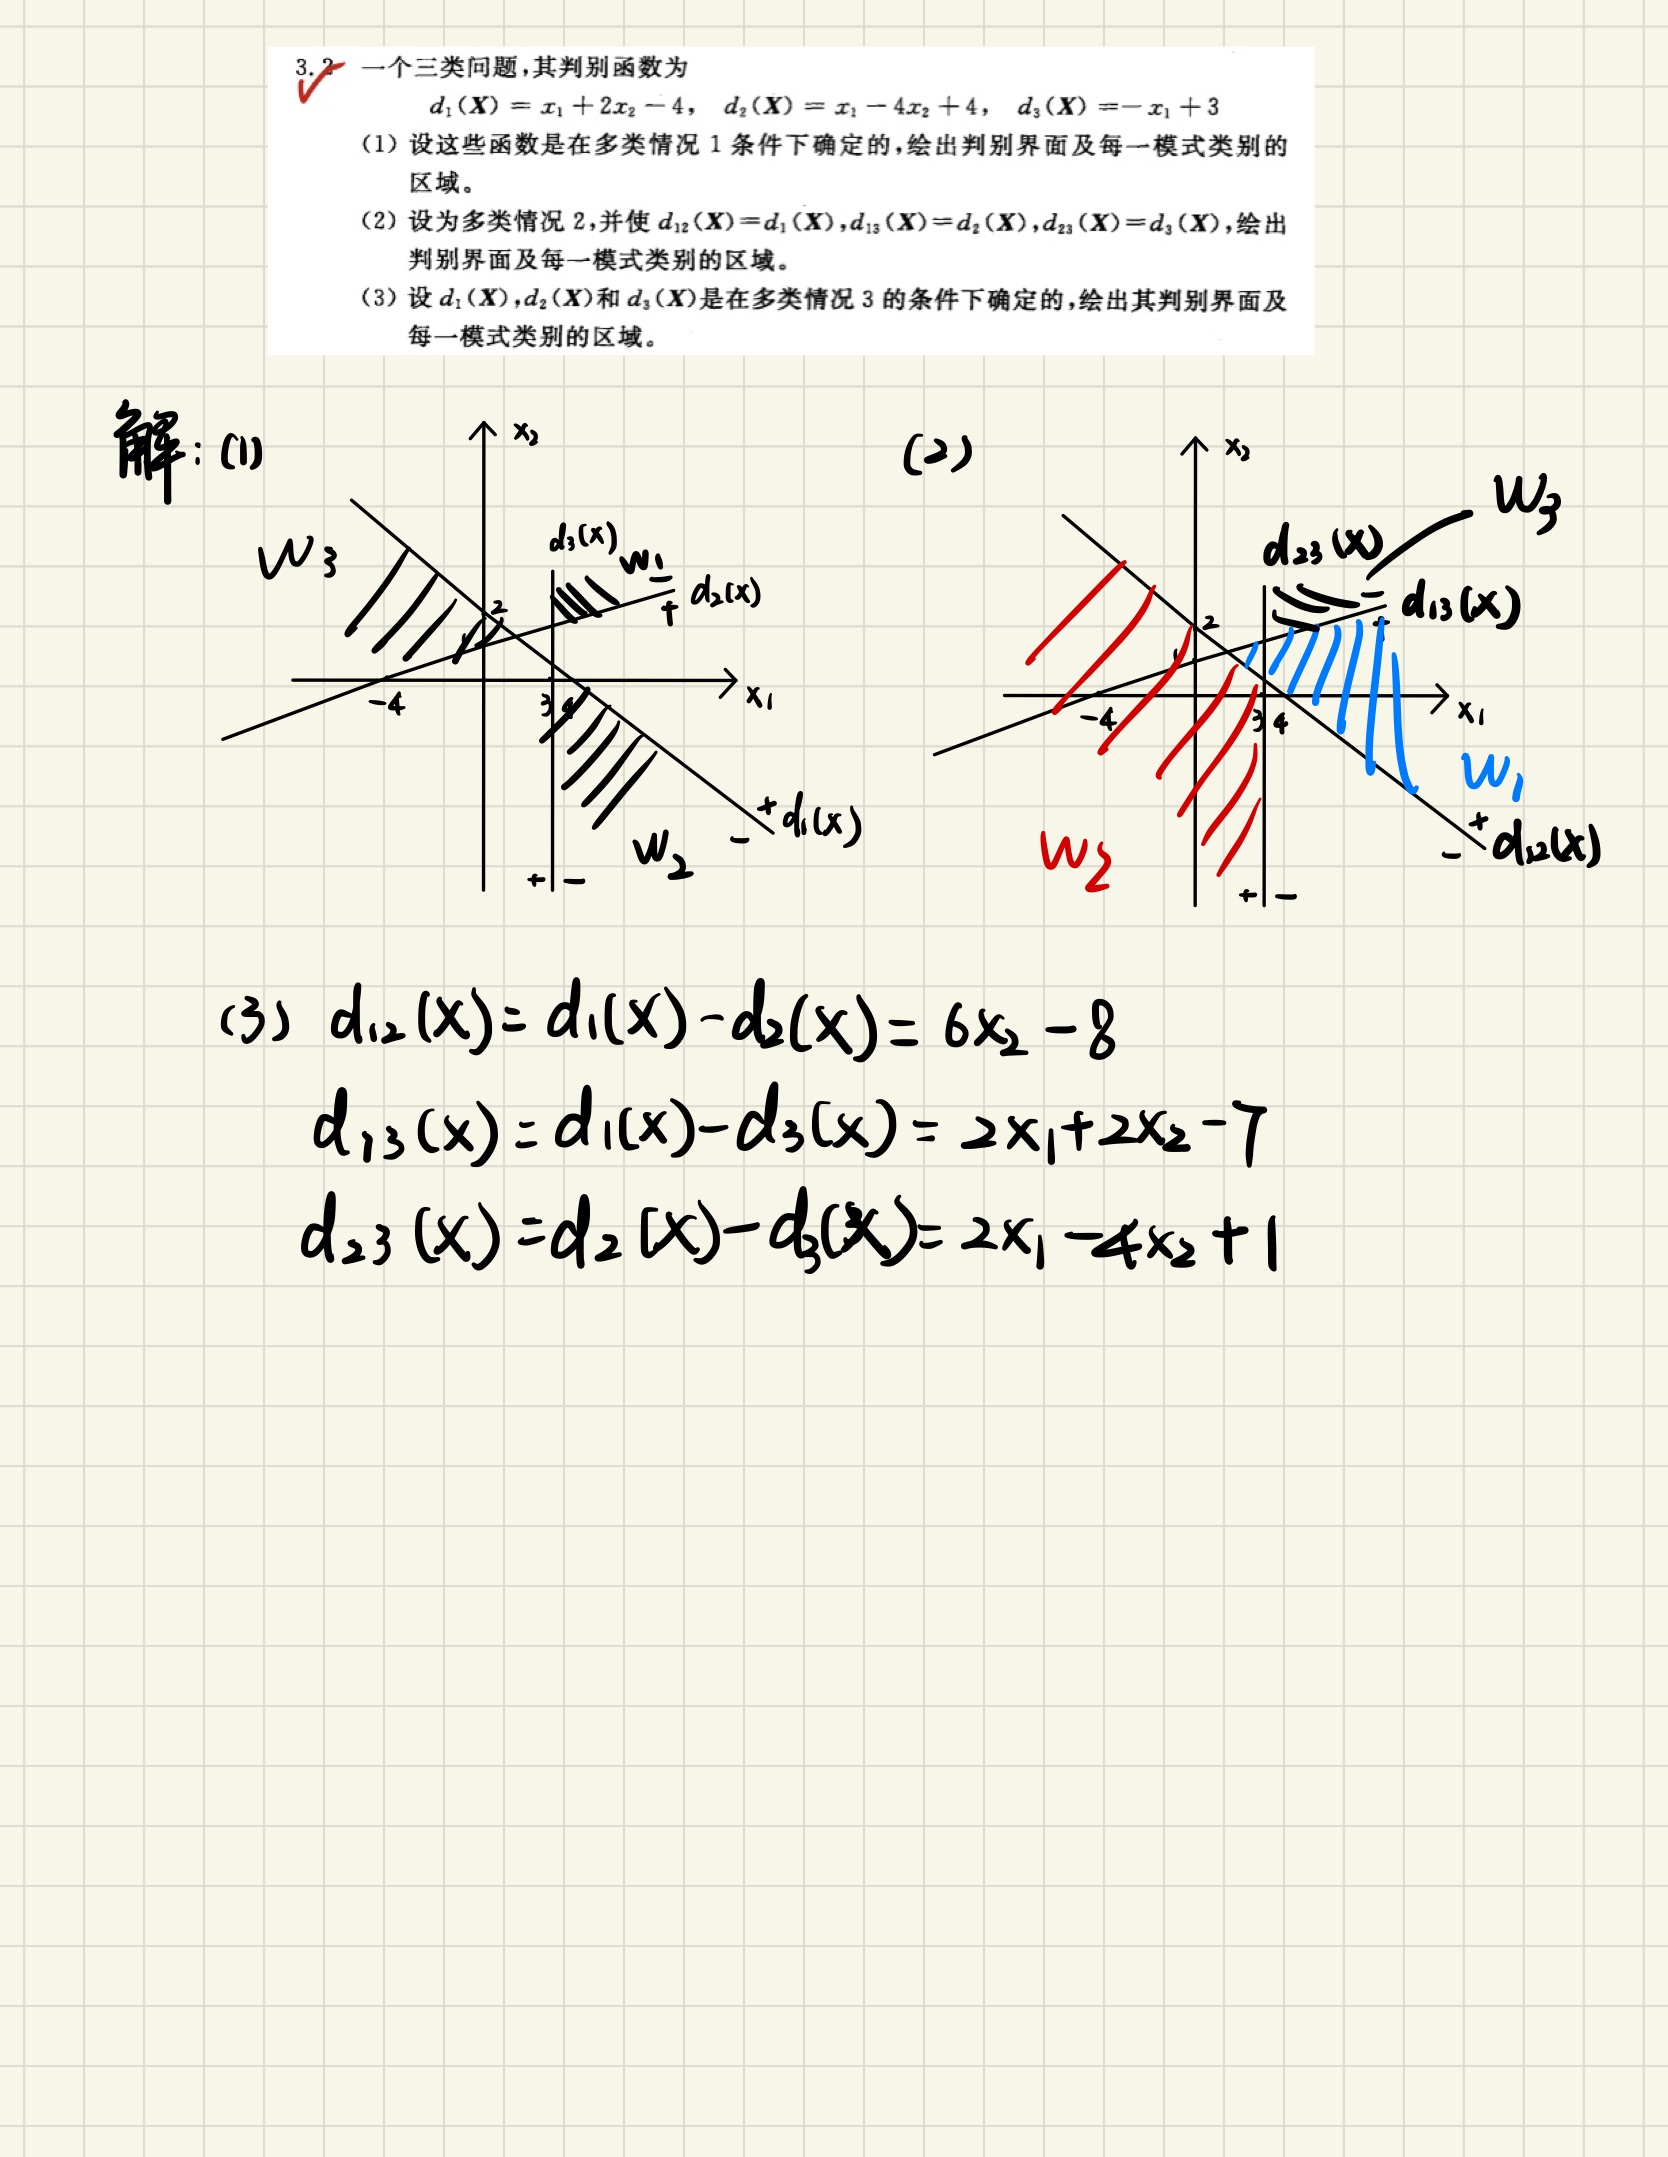 3.2 一个三类问题,其判别函数为
d₁(X) = x₁ + 2x₂ − 4, d₂(X) = x₁ − 4x₂ + 4, d₃(X) = − x₁ + 3
(1) 设这些函数是在多类情况 1 条件下确定的,绘出判别界面及每一模式类别的
区域。
(2) 设为多类情况 2,并使 d₁₂(X)=d₁(X),d₁₃(X)=d₂(X),d₂₃(X)=d₃(X),绘出
判别界面及每一模式类别的区域。
(3) 设 d₁(X),d₂(X)和 d₃(X)是在多类情况 3 的条件下确定的,绘出其判别界面及
每一模式类别的区域。
解: (1)
x₂
W₃
d₃(x)
W₁
−
+
d₂(x)
2
1
−4
3 4
x₁
+ d₁(x)
−
W₂
+ −
(2)
x₂
W₃
d₂₃(x)
−
+
d₁₃(x)
2
1
−4
3 4
x₁
W₁
W₂
+
− d₁₂(x)
+ −
(3) d₁₂(x) = d₁(x) − d₂(x) = 6x₂ − 8
d₁₃(x) = d₁(x) − d₃(x) = 2x₁ + 2x₂ − 7
d₂₃(x) = d₂(x) − d₃(x) = 2x₁ − 4x₂ + 1